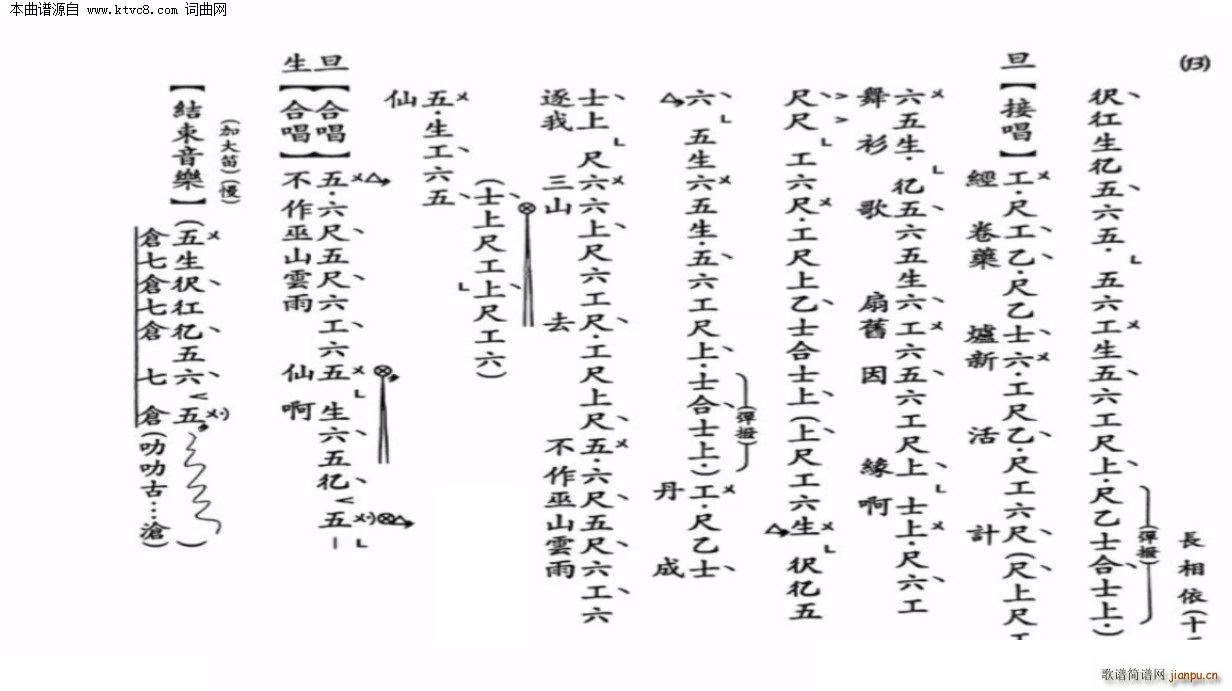 本曲谱源自 www.ktvc8.com 词曲网
(13)
長相依(十
(彈撥)
伬仜生亿五六五·五六工生五六工尺上·尺乙士合士上·)
旦【接唱】工·尺工乙·尺乙士六·工尺乙·尺工六尺(尺上尺工
經卷藥爐新活計
六五生·亿五六五生六工六五六工尺上士上·尺六工
舞衫歌扇舊因緣啊
尺尺工六尺·工尺上乙士合士上(上尺工六生伬亿五
六五生六五生·五六工尺上·士合士上·)工·尺乙士
(彈撥)
丹成
士上尺六六上尺六工尺·工尺上尺五·六尺五尺六工六
逐我三山去不作巫山雲雨
(士上尺工上尺工六)
五·生工六五
仙
旦【合唱】五·六尺五尺六工六五生六五亿五
生【合唱】不作巫山雲雨仙啊
(加大笛)(慢)
【結束音樂】(五生伬仜亿五六五)
倉七倉七倉七倉(叻叻古…滄)
歌谱简谱网 jianpu.cn